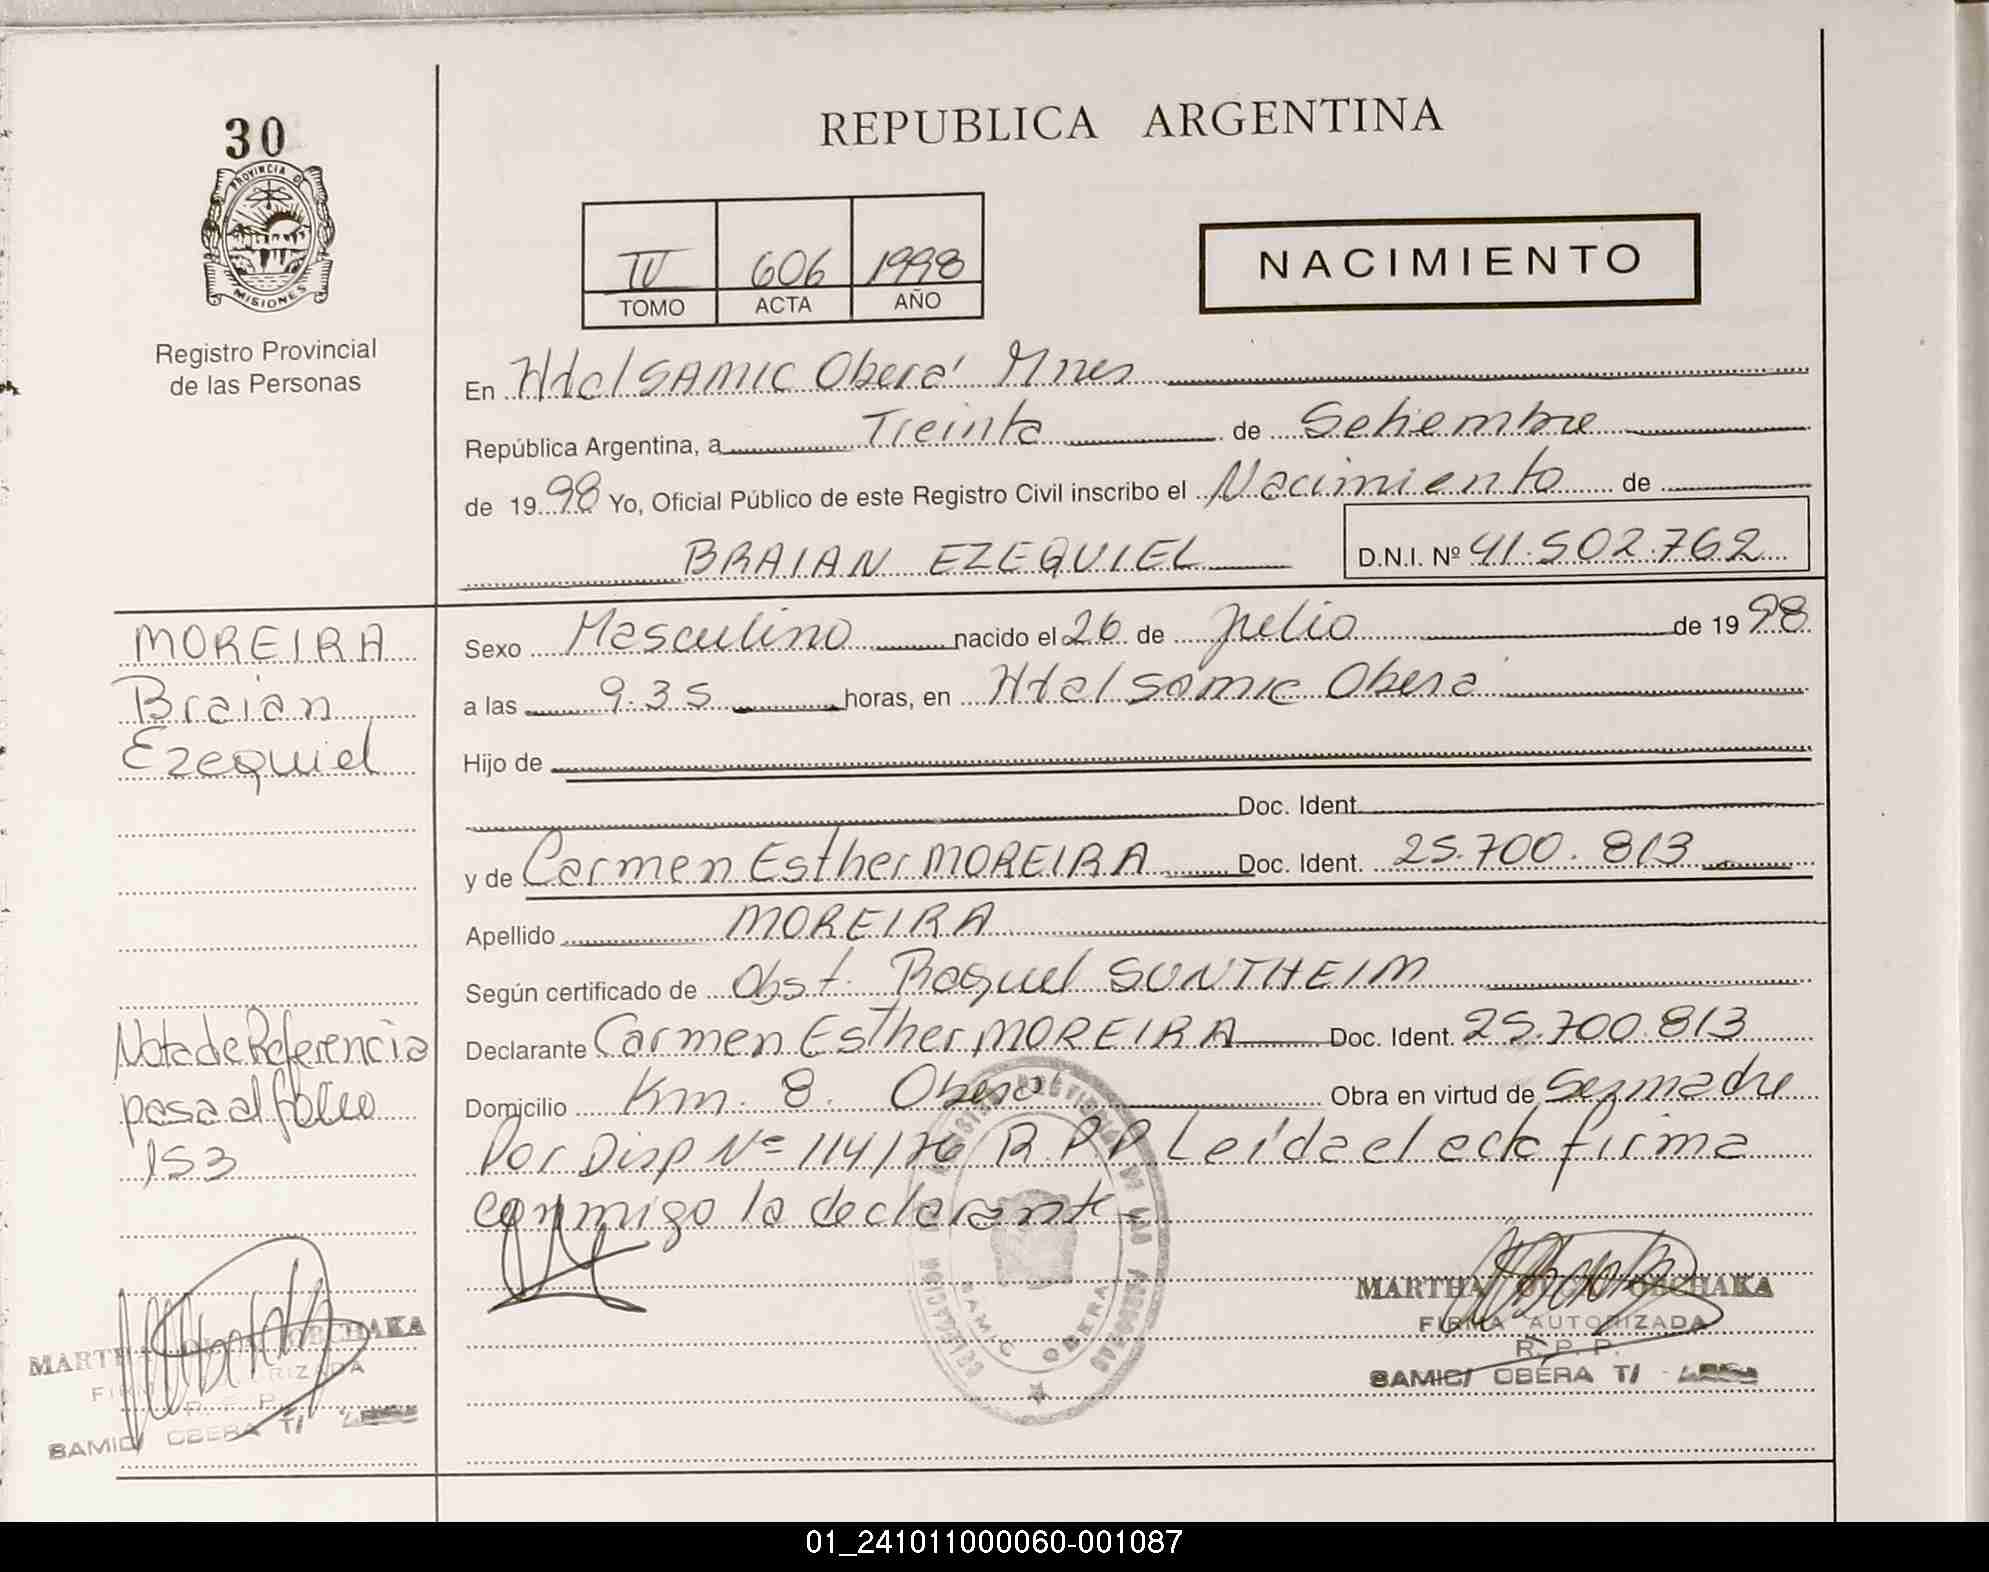 30
PROVINCIA D
MISIONES
Registro Provincial
de las Personas
REPUBLICA ARGENTINA
IV 606 1998
TOMO ACTA AÑO
NACIMIENTO
En Htal SAMIC Oberá Mnes
República Argentina, a Treinta de Setiembre
de 1998 Yo, Oficial Público de este Registro Civil inscribo el Nacimiento de
BRAIAN EZEQUIEL D.N.I. Nº 41.502.762
MOREIRA
Braian
Ezequiel
Sexo Masculino nacido el 26 de Julio de 1998
a las 9.35 horas, en Htal Samic Oberá
Hijo de
Doc. Ident.
y de Carmen Esther MOREIRA Doc. Ident. 25.700.813
Apellido MOREIRA
Según certificado de Obst. Raquel SUNTHEIM
Declarante Carmen Esther MOREIRA Doc. Ident. 25.700.813
Domicilio Km. 8. Oberá Obra en virtud de Ser madre
Por Disp Nº 114/76 R.P.P Leída el acta firma
conmigo la declarante
Nota de Referencia
pasa al folio
153
MARTHA
FIRMA AUTORIZADA
R. P. P.
SAMIC/ OBERA T/
SAMIC OBERA
MARTHA
R. P. P.
SAMIC/ OBERA T/
01_241011000060-001087